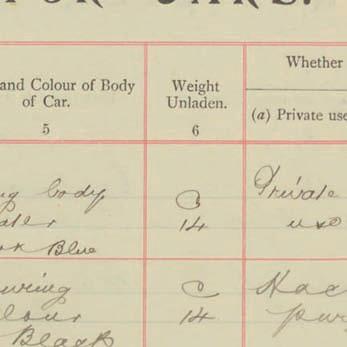 FOR CARS.
and Colour of Body
of Car.
5
Weight
Unladen.
6
Whether
(a) Private use
body
Dark Blue
C
14
Private
use
Touring
Colour
Black
C
14